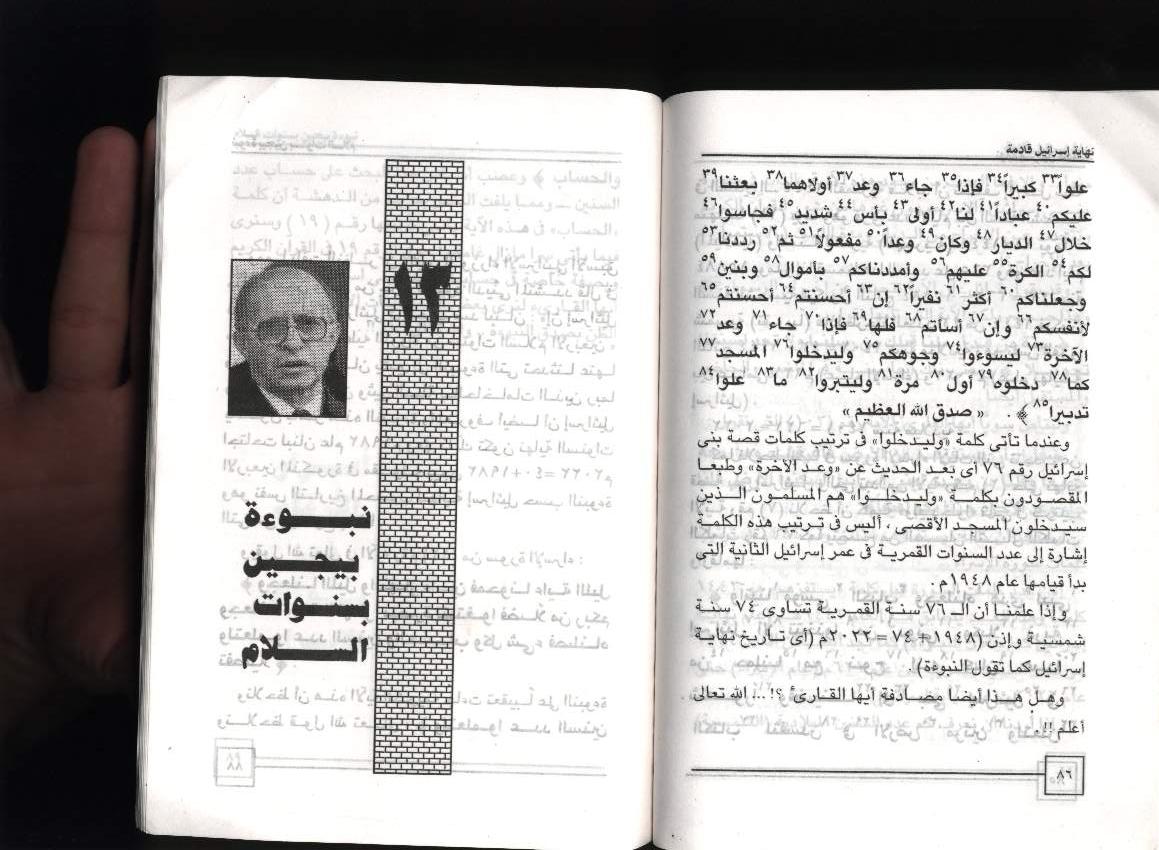 نهاية إسرائيل قادمة
علوا٣٣ كبيراً٣٤ فإذا٣٥ جاء٣٦ وعد٣٧ أولاهما٣٨ بعثنا٣٩
عليكم٤٠ عباداً٤١ لنا٤٢ أولى٤٣ بأس٤٤ شديد٤٥ فجاسوا٤٦
خلال٤٧ الديار٤٨ وكان٤٩ وعداً٥٠ مفعولاً٥١ ثم٥٢ رددنا٥٣
لكم٥٤ الكرة٥٥ عليهم٥٦ وأمددناكم٥٧ بأموال٥٨ وبنين٥٩
وجعلناكم٦٠ أكثر٦١ نفيراً٦٢ إن٦٣ أحسنتم٦٤ أحسنتم٦٥
لأنفسكم٦٦ وإن٦٧ أسأتم٦٨ فلها٦٩ فإذا٧٠ جاء٧١ وعد٧٢
الآخرة٧٣ ليسوءوا٧٤ وجوهكم٧٥ وليدخلوا٧٦ المسجد٧٧
كما٧٨ دخلوه٧٩ أول٨٠ مرة٨١ وليتبروا٨٢ ما٨٣ علوا٨٤
تدبيرا٨٥ ﴾ . « صدق الله العظيم »
وعندما تأتى كلمة «وليدخلوا» فى ترتيب كلمات قصة بنى
إسرائيل رقم ٧٦ أى بعد الحديث عن «وعد الآخرة» وطبعا
المقصودون بكلمة «وليدخلوا» هم المسلمون الذين
سيدخلون المسجد الأقصى ، أليس فى ترتيب هذه الكلمة
إشارة إلى عدد السنوات القمرية فى عمر إسرائيل الثانية التى
بدأ قيامها عام ١٩٤٨م .
وإذا علمنا أن الـ ٧٦ سنة القمرية تساوى ٧٤ سنة
شمسية وإذن (١٩٤٨+ ٧٤ = ٢٠٢٢م (أى تاريخ نهاية
إسرائيل كما تقول النبوءة) .
وهل هذا أيضا مصادفة أيها القارئ ؟!... الله تعالى
أعلم !!
٨٦
١٣
نبوءة
بيجين
بسنوات
السلام